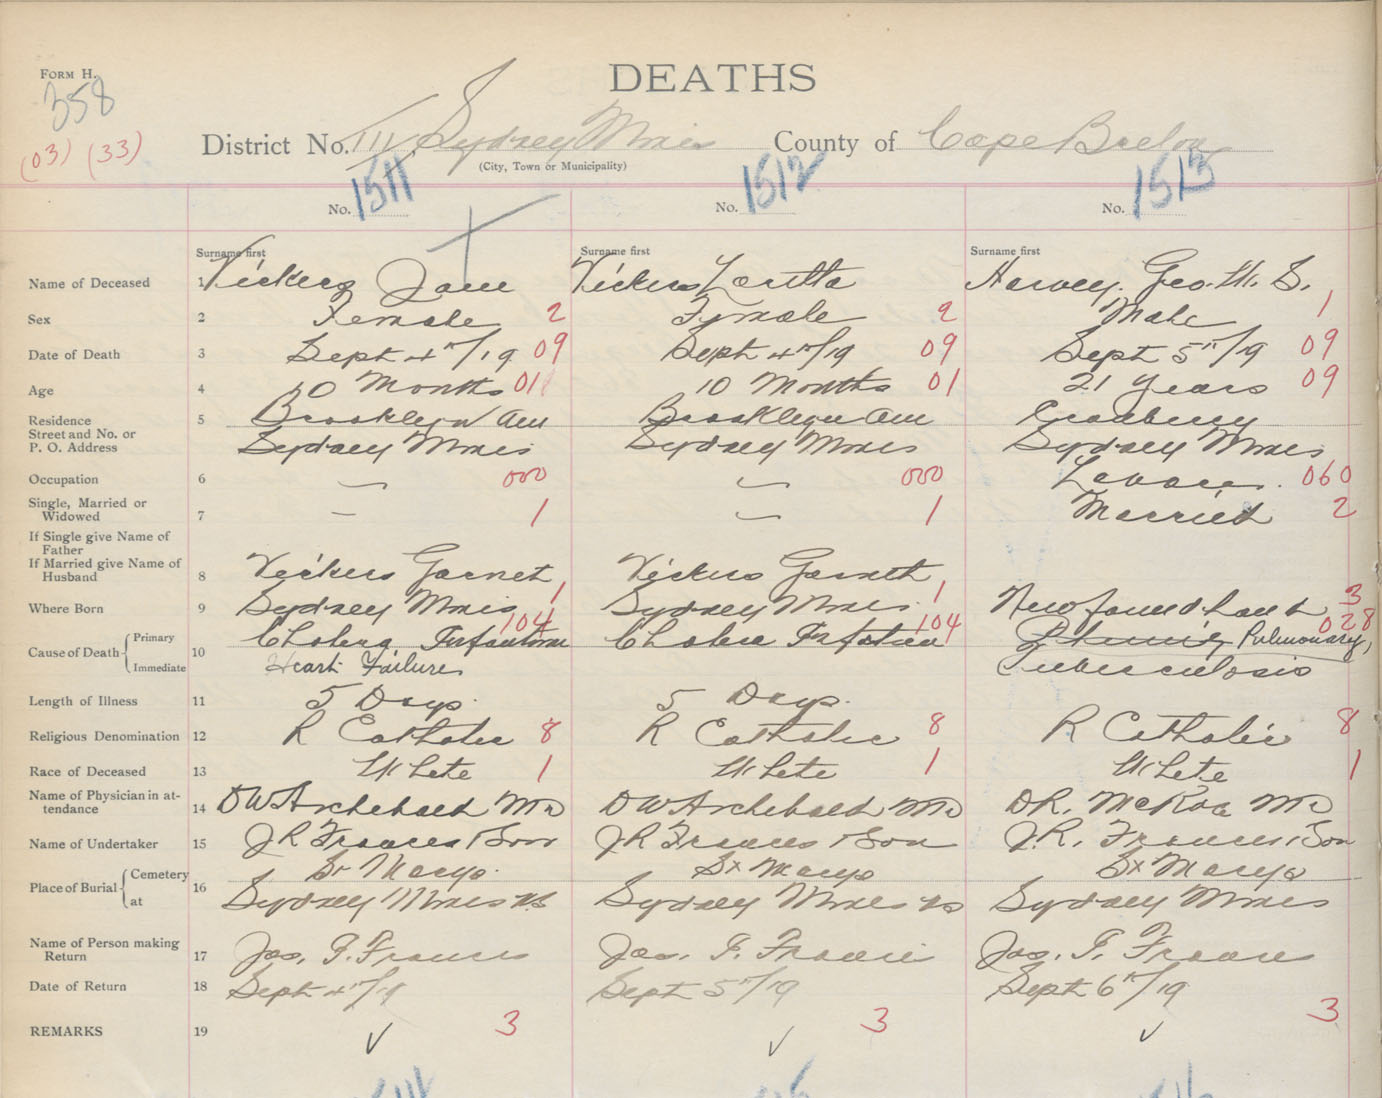 FORM H.
DEATHS
358
(03) (33)
District No. Sydney Mines County of Cape Breton
(City, Town or Municipality)
No. 1511 No. 1512 No. 1513
Surname first Surname first Surname first
Name of Deceased 1 Vickers Jane Vickers Loretta Harvey. Geo. W. S.
Sex 2 Female 2 Female 2 Male 1
Date of Death 3 Sept 4th/19 09 Sept 4th/19 09 Sept 5th/19 09
Age 4 10 Months 01 10 Months 01 21 Years 09
Residence 5 Brooklyn Ave Brooklyn Ave Cranberry
Street and No. or
P. O. Address Sydney Mines Sydney Mines Sydney Mines
Occupation 6 — 000 — 000 Labor. 060
Single, Married or
Widowed 7 — 1 — 1 Married 2
If Single give Name of
Father
If Married give Name of
Husband 8 Vickers Garnet Vickers Garneth
Where Born 9 Sydney Mines 1 Sydney Mines 1 Newfoundland 3
104 104 028
Cause of Death { Primary 10 Cholera Infantum Cholera Infantum Pulmonary,
Immediate Heart Failure Tuberculosis
Length of Illness 11 5 Days. 5 Days.
Religious Denomination 12 R Catholic 8 R Catholic 8 R Catholic 8
Race of Deceased 13 White 1 White 1 White 1
Name of Physician in at-
tendance 14 D W Archebald MD D W Archebald MD DR. McRae MD
Name of Undertaker 15 J R Frances & Son J R Frances & Son J. R. Frances & Son
Place of Burial { Cemetery 16 St Marys. St Marys St Marys
at Sydney Mines NS Sydney Mines NS Sydney Mines
Name of Person making
Return 17 Jas. P. Frances Jas. P. Francis Jas. P. Frances
Date of Return 18 Sept 4th/19 Sept 5th/19 Sept 6th/19
REMARKS 19 ✓ 3 ✓ 3 ✓ 3